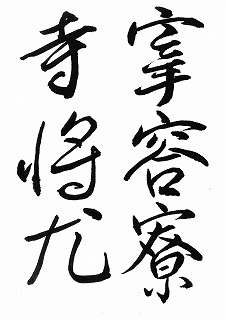 宰容寮
寺将尤